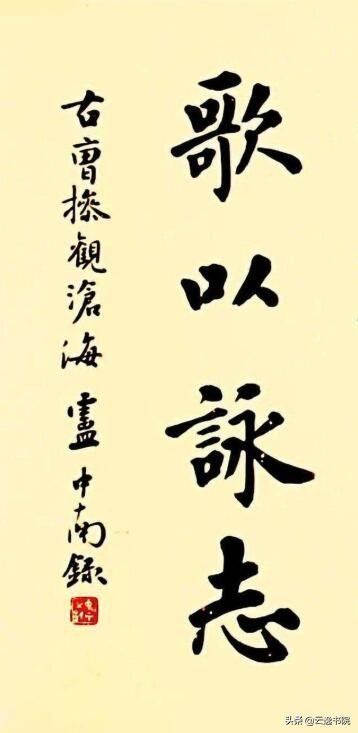 歌以詠志
右曹操觀滄海 盧中南錄
头条 @云逸书院